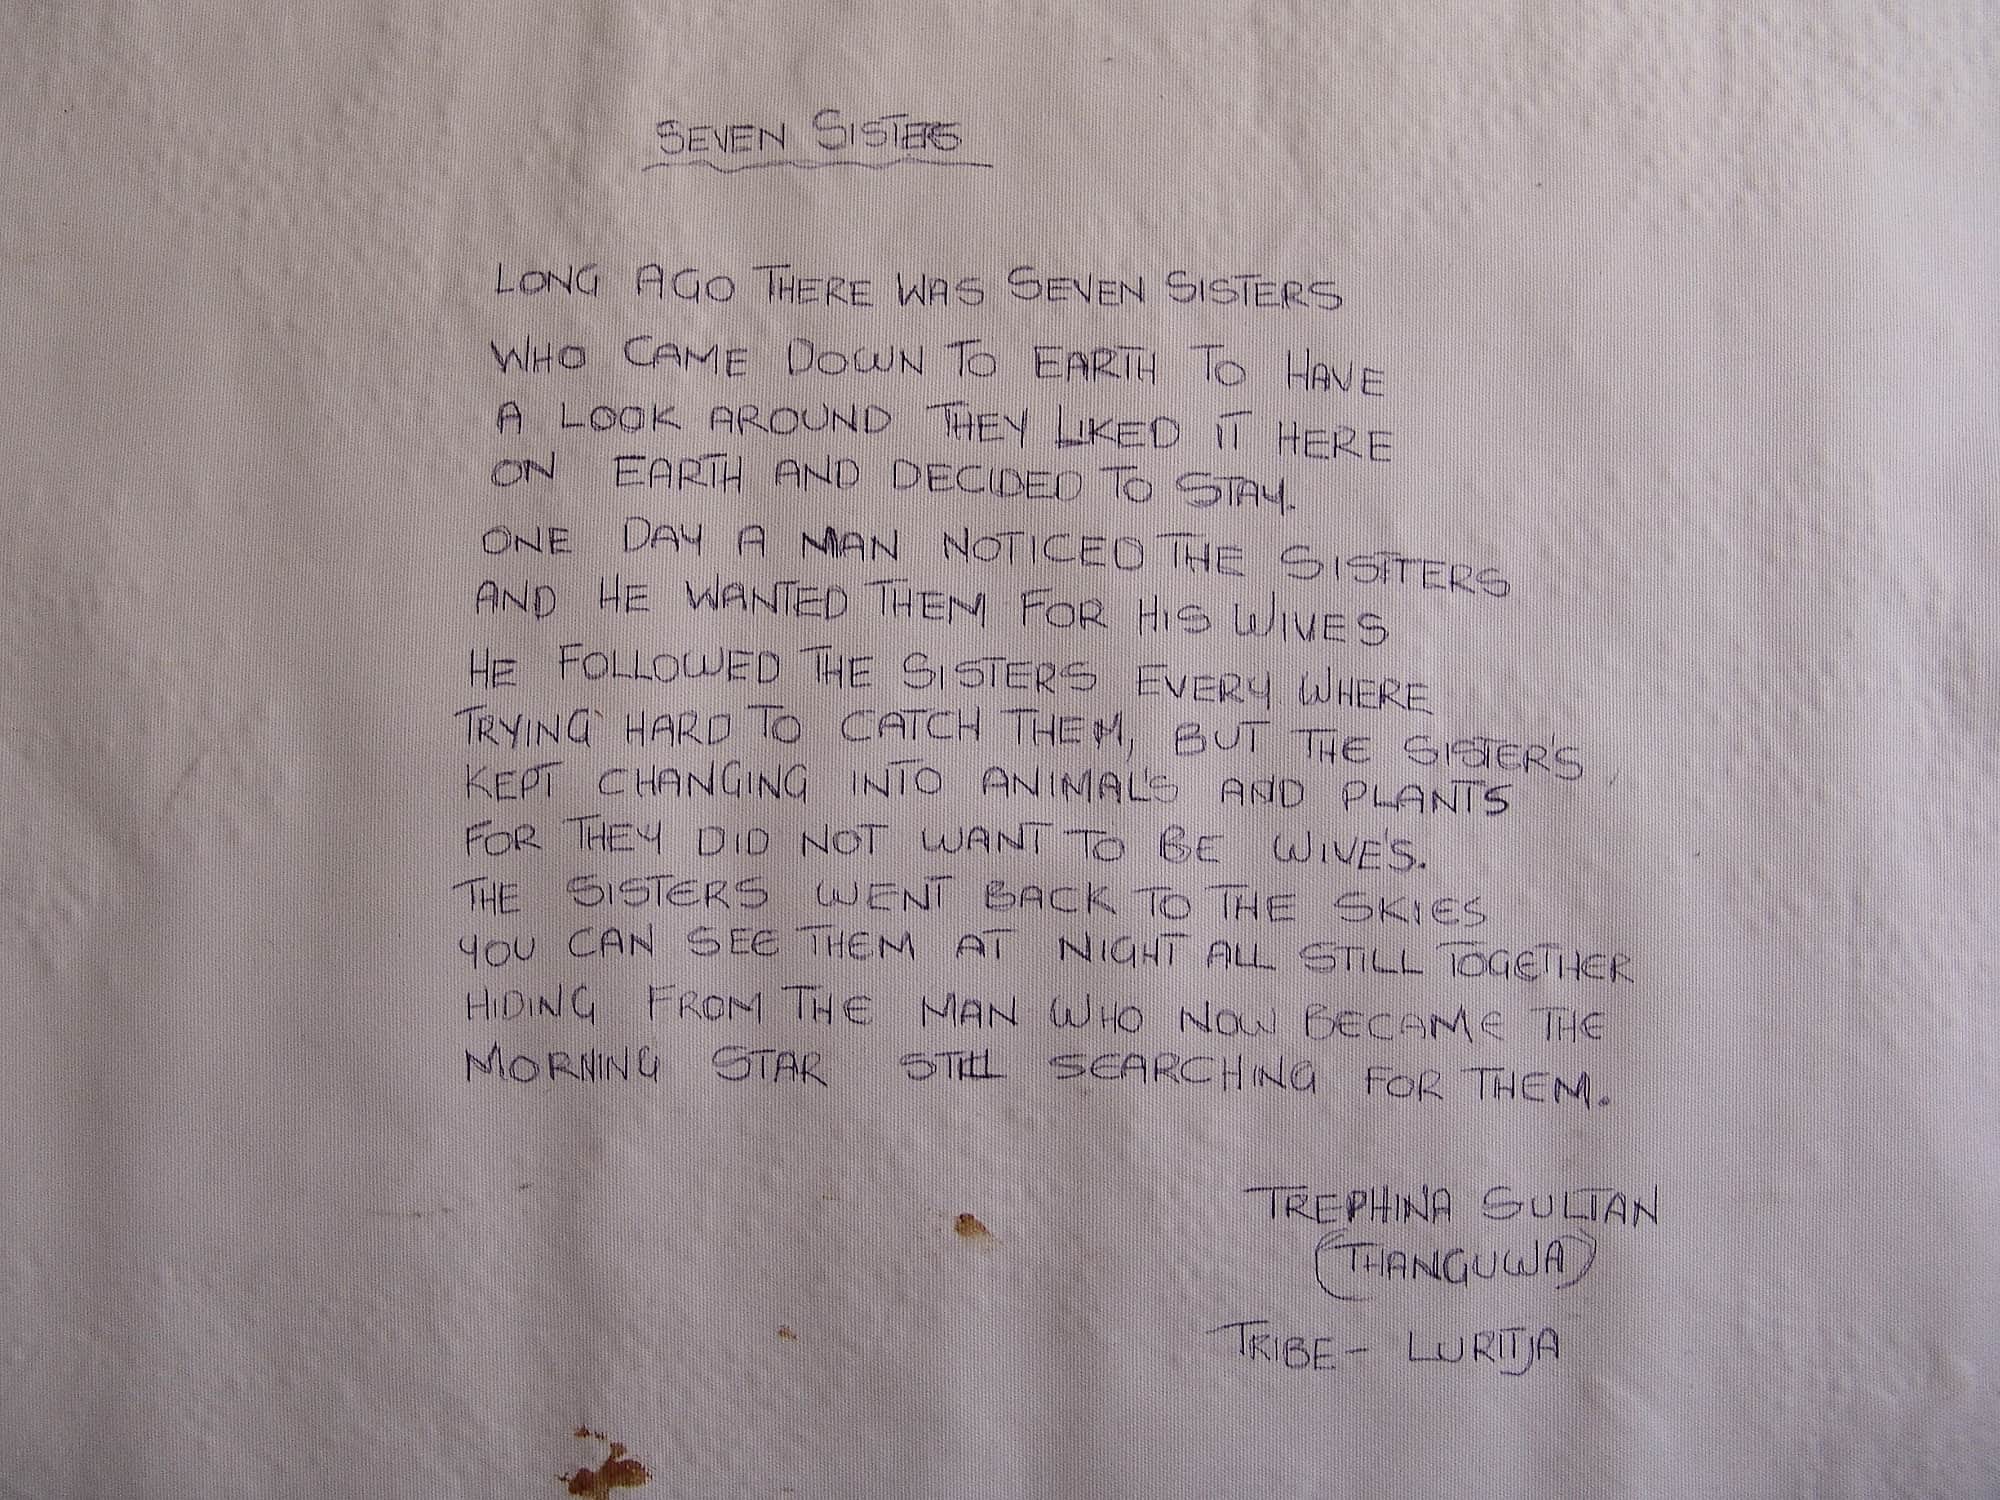 SEVEN SISTERS
LONG AGO THERE WAS SEVEN SISTERS
WHO CAME DOWN TO EARTH TO HAVE
A LOOK AROUND THEY LIKED IT HERE
ON EARTH AND DECIDED TO STAY.
ONE DAY A MAN NOTICED THE SISTTERS
AND HE WANTED THEM FOR HIS WIVES
HE FOLLOWED THE SISTERS EVERY WHERE
TRYING HARD TO CATCH THEM, BUT THE SISTER'S
KEPT CHANGING INTO ANIMAL'S AND PLANTS
FOR THEY DID NOT WANT TO BE WIVE'S.
THE SISTERS WENT BACK TO THE SKIES
YOU CAN SEE THEM AT NIGHT ALL STILL TOGETHER
HIDING FROM THE MAN WHO NOW BECAME THE
MORNING STAR STILL SEARCHING FOR THEM.
TREPHINA SULTAN
(THANGUWA)
TRIBE - LURITJA